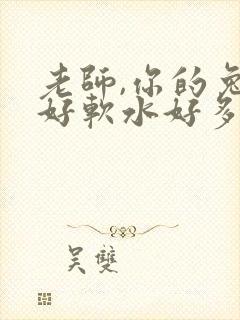 老師,你的兔
好軟水好多
吴雙